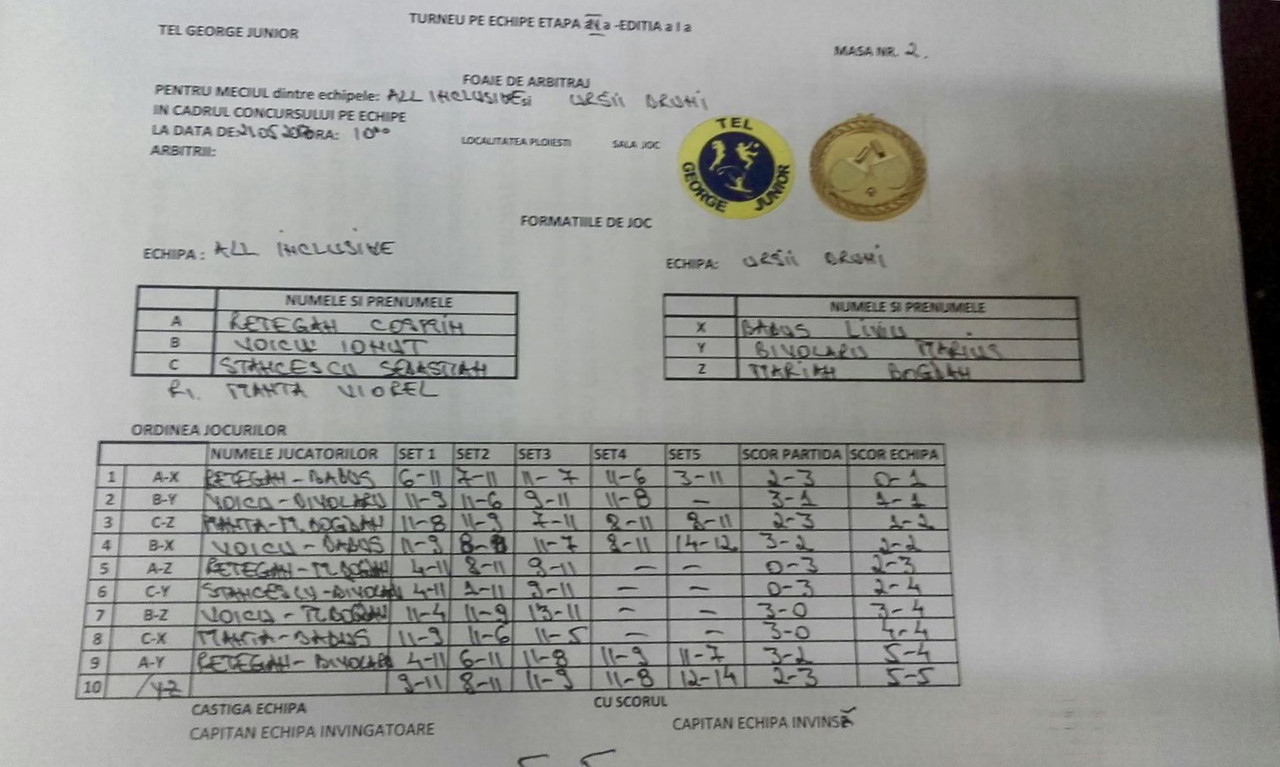 TEL GEORGE JUNIOR
TURNEU PE ECHIPE ETAPA a a -EDITIA a I a
MASA NR. 2.
FOAIE DE ARBITRAJ
PENTRU MECIUL dintre echipele: ALL INCLUSIVE si URSII BRUNI
IN CADRUL CONCURSULUI PE ECHIPE
LA DATA DE: ORA: 10⁰⁰ LOCALITATEA PLOIESTI SALA JOC
ARBITRII:
TEL
GEORGE JUNIOR
FORMATIILE DE JOC
ECHIPA : ALL INCLUSIVE
ECHIPA: URSII BRUNI
NUMELE SI PRENUMELE
A RETEGAN COSMIN
B VOICU IONUT
C STANCESCU SEBASTIAN
R1. MANTA VIOREL
NUMELE SI PRENUMELE
X BABUS LIVIU
Y BIVOLARU MARIUS
Z MARIAN BOGDAN
ORDINEA JOCURILOR
NUMELE JUCATORILOR SET 1 SET2 SET3 SET4 SET5 SCOR PARTIDA SCOR ECHIPA
1 A-X RETEGAN-BABUS 6-11 7-11 11-7 11-6 3-11 2-3 0-1
2 B-Y VOICU-BIVOLARU 11-9 11-6 9-11 11-8 - 3-1 1-1
3 C-Z MANTA-M.BOGDAN 11-8 11-9 7-11 8-11 8-11 2-3 1-2
4 B-X VOICU-BABUS 11-9 11-7 8-11 14-12 3-2 2-2
5 A-Z RETEGAN-M.BOGDAN 4-11 8-11 9-11 - - 0-3 2-3
6 C-Y STANCESCU-BIVOLARU 4-11 1-11 9-11 - - 0-3 2-4
7 B-Z VOICU-M.BOGDAN 11-4 11-9 13-11 - - 3-0 3-4
8 C-X MANTA-BABUS 11-9 11-6 11-5 - - 3-0 4-4
9 A-Y RETEGAN-BIVOLARU 4-11 6-11 11-8 11-9 11-7 3-2 5-4
10 /Y-Z 9-11 8-11 11-9 11-8 12-14 2-3 5-5
CASTIGA ECHIPA CU SCORUL
CAPITAN ECHIPA INVINGATOARE CAPITAN ECHIPA INVINSĂ